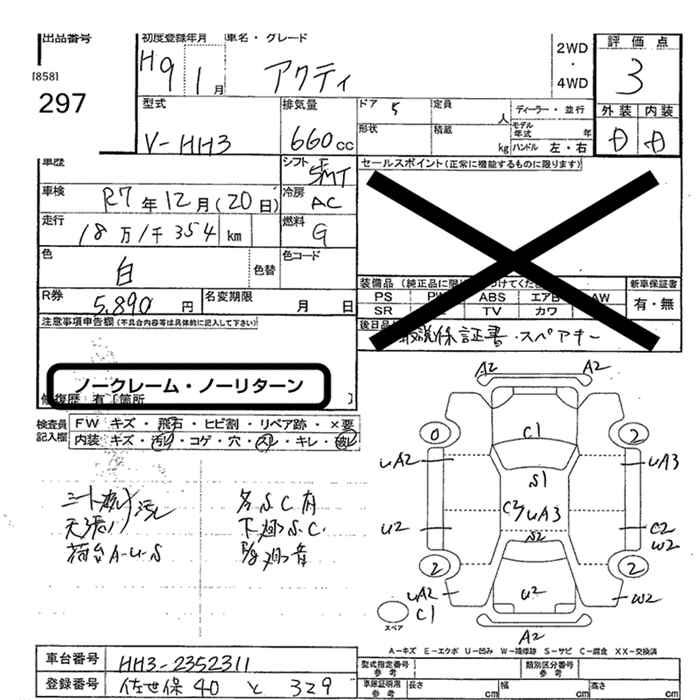 出品番号
[858]
297
初度登録年月
H9 1月
車名・グレード
アクティ
2WD
・
4WD
評価点
3
外装 内装
D D
型式
V-HH3
排気量
660cc
ドア 5
定員
人
ディーラー・並行
形状
積載
kg
モデル年式
年
ハンドル 左・右
車歴
シフト
5MT
セールスポイント(正常に機能するものに限ります)
車検
R7年12月(20日)
冷房
AC
走行
18万1千354km
燃料
G
色
白
色替
色コード
装備品
新車保証書
有・無
PS
ABS
エアB
AW
SR
TV
カワ
R券
5,890円
名変期限
月 日
後日品
取説保証書・スペアキー
注意事項申告欄(不具合内容等は具体的に記入して下さい)
ノークレーム・ノーリターン
修復歴 有[箇所 ]
検査員記入欄
FW キズ・飛石・ヒビ割・リペア跡・×要
内装 キズ・汚レ・コゲ・穴・スレ・キレ・破レ
シート破レ汚レ
天張リ
荷台A-U-S
各S.C有
下廻S.C.
A2 A2
0 2
C1
UA2 UA3
S1
C3 UA3
U2 C2
W2
S2
2 2
U2
UA2 W2
C1
A2
スペア
A-キズ E-エクボ U-凹み W-補修跡 S-サビ C-腐食 XX-交換済
車台番号
HH3-2352311
登録番号
佐世保 40 と 329
型式指定番号
参考
類別区分番号
参考
車庫証明用
参考
長さ cm
幅 cm
高さ cm